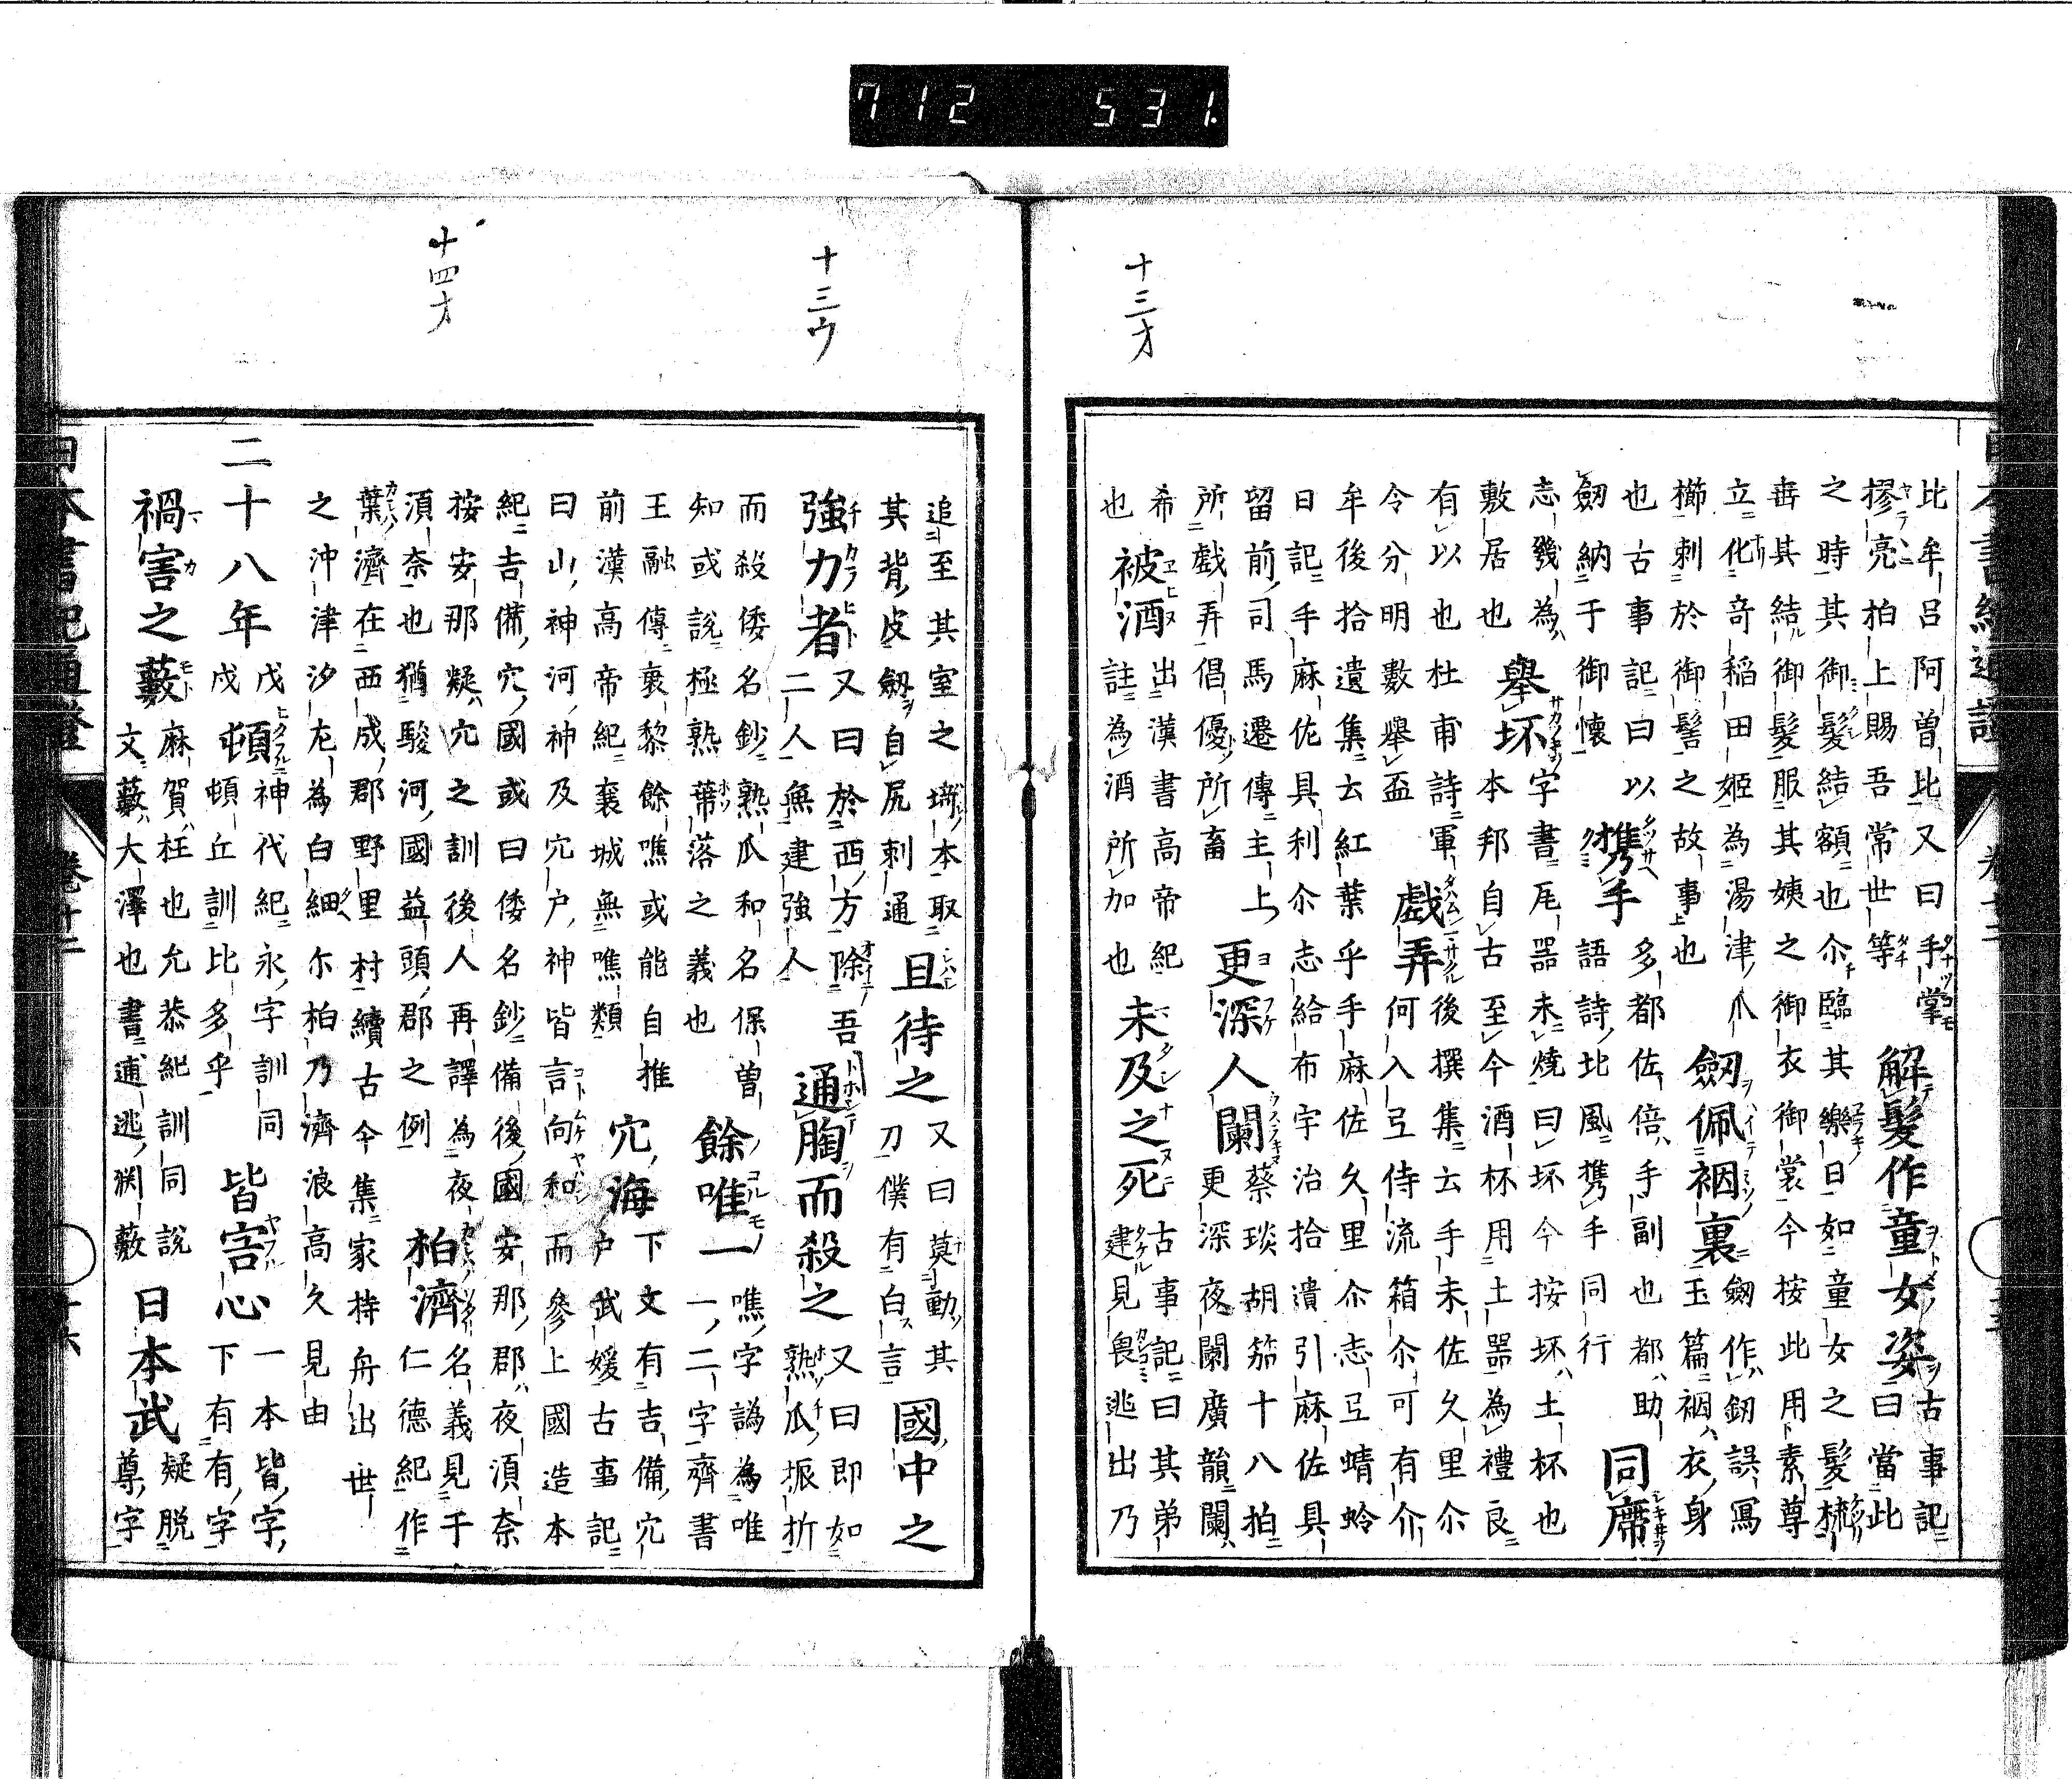 712 531.
十三オ
比牟呂阿曽比又曰手掌
摎亮拍上賜吾常世等
解髮作童女姿
古事記
曰當此
之時其御髮結額也尒臨其樂日如童女之髮梳
垂其結御髮服其姨之御衣御裳今按此用素尊
立化奇稻田姬為湯津爪
櫛刺於御髻之故事也
劔佩裀裏
劔作釼誤寫
玉篇裀衣身
也古事記曰以
劔納于御懷
携手
多都佐倍手副也都助
語詩北風携手同行
同席
志發為
敷居也
舉坏
字書瓦器未燒曰坏今按坏土杯也
本邦自古至今酒杯用土器為禮良
有以也杜甫詩軍
令分明數舉盃
戲弄
後撰集云手未佐久里尒
何入弖侍流箱尒可有介
牟後拾遺集云紅葉乎手麻佐久里尒志弖蜻蛉
日記手麻佐具利尒志給布宇治拾遺引麻佐具
留前司馬遷傳主上
所戲弄倡優所畜
更深人闌
蔡琰胡笳十八拍
更深夜闌廣韻闌
希也
被酒
出漢書高帝紀
註為酒所加也
未及之死
古事記曰其弟
建見畏逃出乃
十三ウ
追至其室之𡌛本取
其背皮劔自尻刺通
且待之
又曰莫動其
刀僕有白言
國中之
強力者
又曰於西方除吾
二人無建強人
通胸而殺之
又曰即如
熟瓜振折
而殺倭名鈔熟瓜和名保曽
知或說極熟蔕落之義也
餘唯一
噍字譌為唯
一二字齊書
王融傳衰黎餘噍或能自推
前漢高帝紀襄城無噍類
穴海
下文有吉備穴
戶武媛古事記
曰山神河神及穴戶神皆言向和而參上國造本
紀吉備穴國或曰倭名鈔備後國安那郡夜須奈
十四オ
按安那疑穴之訓後人再譯為夜
須奈也猶駿河國益頭郡之例
柏濟
名義見于
仁德紀作
葉濟在西成郡野里村續古今集家持舟出世
之沖津汐左為白細尓柏乃濟浪高久見由
二十八年
戊戌
頓
神代紀永字訓同
頓丘訓比多乎
皆害心
一本皆字
下有有字
禍害之藪
麻賀枉也允恭紀訓同說
文藪大澤也書逋逃淵藪
日本武
疑脫
尊字
日本書紀通證
卷十二